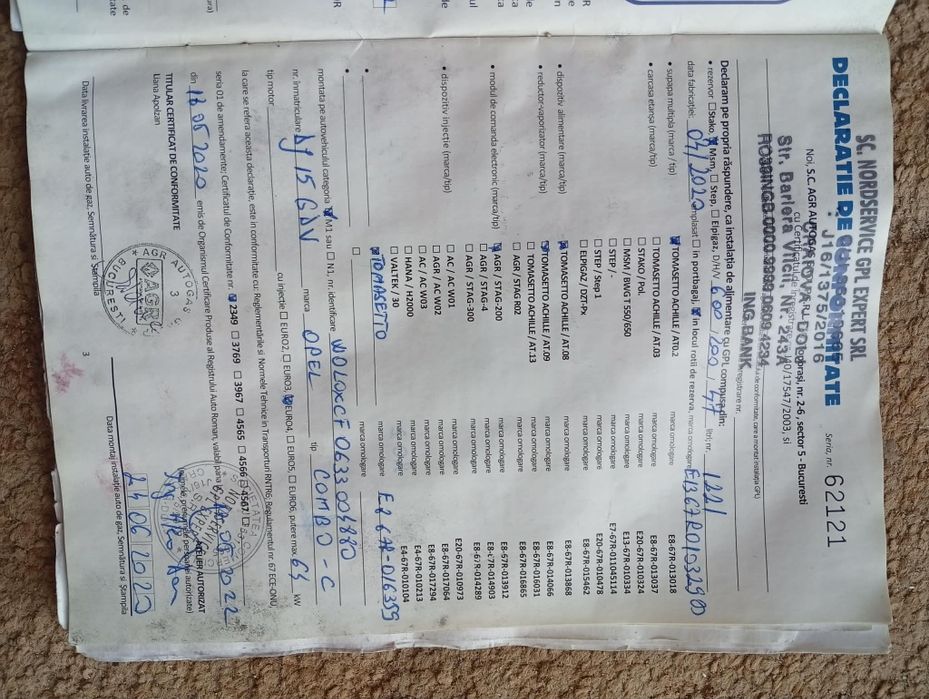 SC. NORDSERVICE GPL EXPERT SRL
DECLARATIE DE CONFORMITATE
J16/1375/2016
Seria, nr. 62121
Noi, S.C. AGR AUTOGAS
nr. 2-6, sector 5 - Bucuresti
Str. Bariera Vâlcii, Nr. 247A
40/17547/2003, si
ING BANK
Declaram pe propria răspundere, ca instalatia de alimentare cu GPL compusa din:
• rezervor ☐ Stako, ☒ Msm, ☐ Step, ☐ Elpigaz, D/H/V 600/200/47 litri nr. 1221
data fabricației: 04/2020 amplasat ☐ in portbagaj, ☒ in locul rotii de rezerva, marca omologare
• supapa multipla (marca / tip) ☒ TOMASETTO ACHILLE / AT.02 marca omologare E8-67R-013018
• carcasa etanșa (marca/tip) ☐ TOMASETTO ACHILLE / AT.03 marca omologare E8-67R-013037
☐ STAKO / Pol. marca omologare E20-67R-010324
☐ MSM / BWGT 550/650 marca omologare E13-67R-010334
☐ STEP /- marca omologare E7-67R-011045114
☐ STEP / Step 1 marca omologare E20-67R-010478
☐ ELPIGAZ / DZT-Px marca omologare E8-67R-015462
• dispozitiv alimentare (marca/tip) ☒ TOMASETTO ACHILLE / AT.08 marca omologare E8-67R-013868
• reductor-vaporizator (marca/tip) ☒ TOMASETTO ACHILLE / AT.09 marca omologare E8-67R-014066
☐ TOMASETTO ACHILLE / AT.13 marca omologare E8-67R-016031
☐ AGR / STAG R02 marca omologare E8-67R-016865
• modul de comanda electronic (marca/tip) ☒ AGR / STAG-200 marca omologare E8-67R-013912
☐ AGR / STAG-4 marca omologare E8-67R-014903
☐ AGR / STAG-300 marca omologare E8-67R-014289
• dispozitiv injecție (marca/tip) ☐ AC / AC W01 marca omologare E20-67R-010973
☐ AGR / AC W02 marca omologare E8-67R-017064
☐ AC / AC W03 marca omologare E8-67R-017294
☐ HANA / H2000 marca omologare E4-67R-010213
☐ VALTEK / 30 marca omologare E4-67R-010104
☒ TOMASETTO marca omologare E8 67R-016399
☐ marca omologare
montata pe autovehiculul categoria ☒ M1 sau ☐ N1, nr. identificare W0L0XCF0633004880
nr. inmatriculare DJ 15 GAV marca OPEL tip COMBO - C
tip motor cu injecție, ☐ EURO2, ☐ EURO3, ☒ EURO4, ☐ EURO5, ☐ EURO6, putere max. 64 kW
la care se refera aceasta declarație, este in conformitate cu: Reglementările si Normele Tehnice in Transporturi RNTR6, Regulamentul nr. 67 ECE-ONU,
seria 01 de amendamente; Certificatul de Conformitate nr. ☒ 2349 ☐ 3769 ☐ 3967 ☐ 4565 ☐ 4566 ☐ 4567
din 13 05 2020 emis de Organismul Certificare Produse al Registrului Auto Roman, valabil pana 2022
TITULAR CERTIFICAT DE CONFORMITATE
ATELIER AUTORIZAT
Liana Apolzan
AGR AUTOGAS
3
AGR
BUCURESTI
24 06 2020
Data livrarea instalație auto de gaz, Semnătura si Ștampila
3
Data montaj instalație auto de gaz, Semnătura si Ștampila